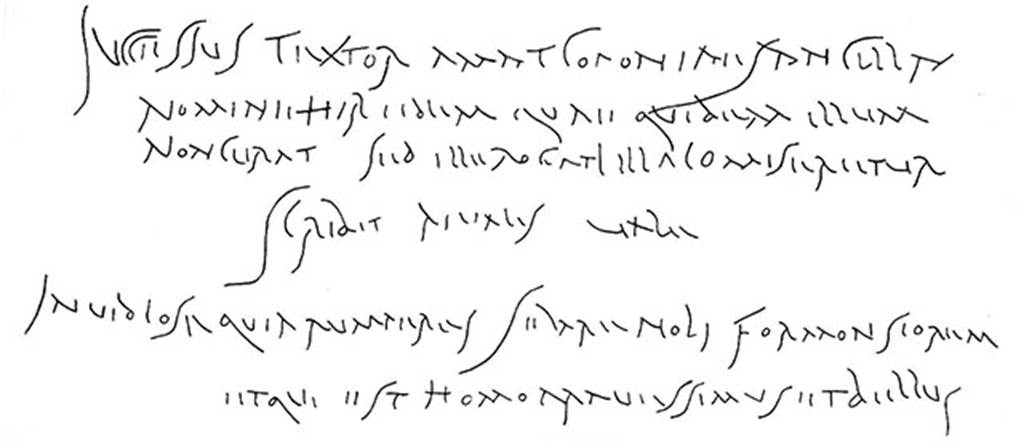 Successus textor amat coponiaes ancilla
nomine Hiredem quae quidem illum
non curat sed ille rogat illa comiseretur
scribit rivalis vale
invidiose quia rumperis sedare noli formonsiorem
et qui est homo pravessimus et bellus